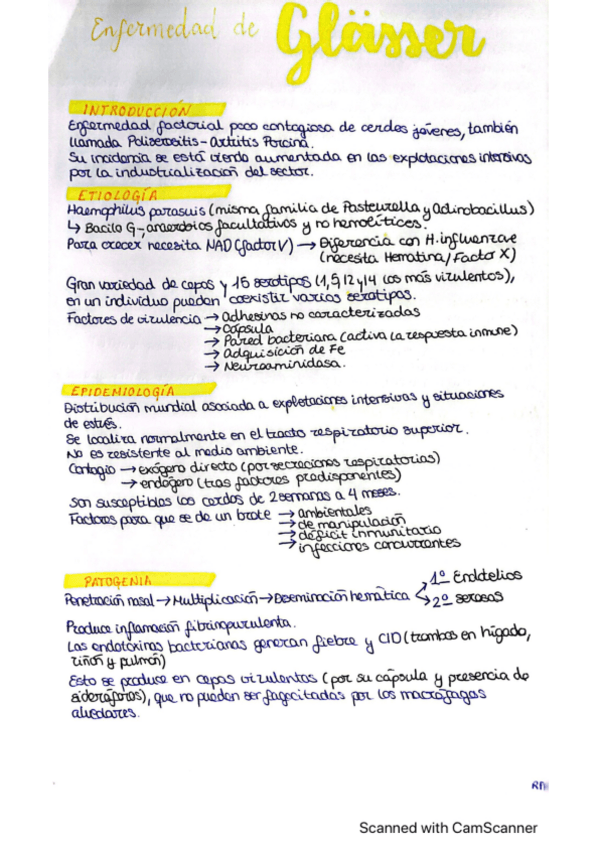 Enfermedad de Glässer
INTRODUCCIÓN
Enfermedad factorial poco contagiosa de cerdos jóvenes, también
llamada Poliserositis-Artritis Porcina.
Su incidencia se está viendo aumentada en las explotaciones intensivas
por la industrialización del sector.
ETIOLOGÍA
Haemophilus parasuis (misma familia de Pasteurella y Actinobacillus)
↳ Bacilo G-, anaerobios facultativos y no hemolíticos.
Para crecer necesita NAD (factor V) → Diferencia con H. influenzae
(necesita Hematina / Factor X)
Gran variedad de cepas y 15 serotipos (1, 5, 12 y 14 los más virulentos),
en un individuo pueden coexistir varios serotipos.
Factores de virulencia → Adhesinas no caracterizadas
→ Cápsula
→ Pared bacteriana (activa la respuesta inmune)
→ Adquisición de Fe
→ Neuroaminidasa.
EPIDEMIOLOGÍA
Distribución mundial asociada a explotaciones intensivas y situaciones
de estrés.
Se localiza normalmente en el tracto respiratorio superior.
No es resistente al medio ambiente.
Contagio → exógeno directo (por secreciones respiratorias)
→ endógeno (tras factores predisponentes)
Son susceptibles los cerdos de 2 semanas a 4 meses.
Factores para que se de un brote → ambientales
→ de manipulación
→ déficit inmunitario
→ infecciones concurrentes
PATOGENIA
Penetración nasal → Multiplicación → Diseminación hemática → 1º Endotelios
→ 2º serosas
Produce inflamación fibrinopurulenta.
Las endotoxinas bacterianas generan fiebre y CID (trombos en hígado,
riñón y pulmón)
Esto se produce en cepas virulentas (por su cápsula y presencia de
sideróforos), que no pueden ser fagocitadas por los macrófagos
alveolares.
Scanned with CamScanner